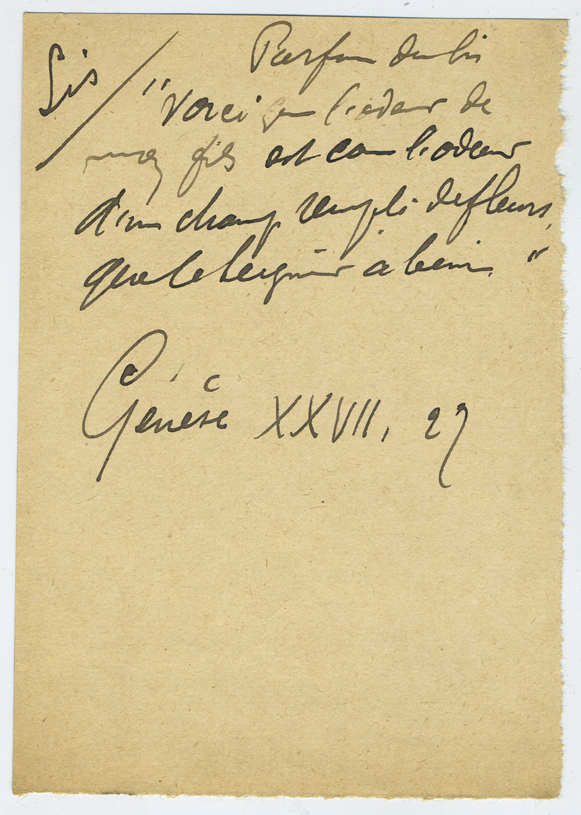 Lis /
Parfum du lis
"Voici que l'odeur de
mon fils est com l'odeur
d'un champ rempli de fleurs,
que le Seigneur a béni "
Génèse XXVII, 27